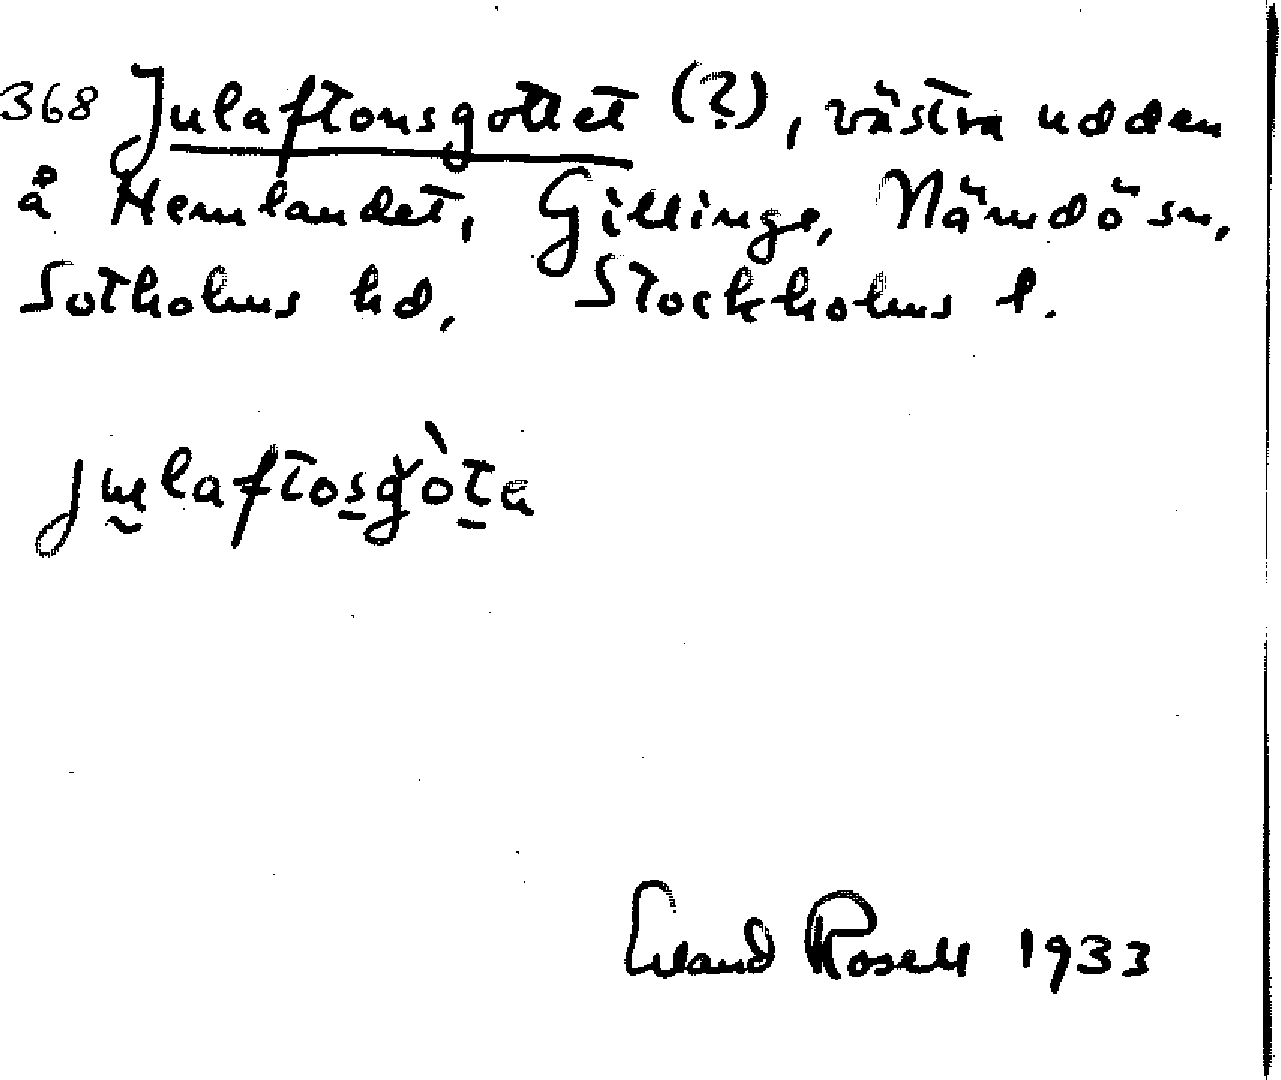 368 Julaftonsgottet (?), västra udden
å Hemlandet, Gillinge, Nämdö sn,
Sotholms hd, Stockholms l.
julaftosgòta
Erland Rosell 1933